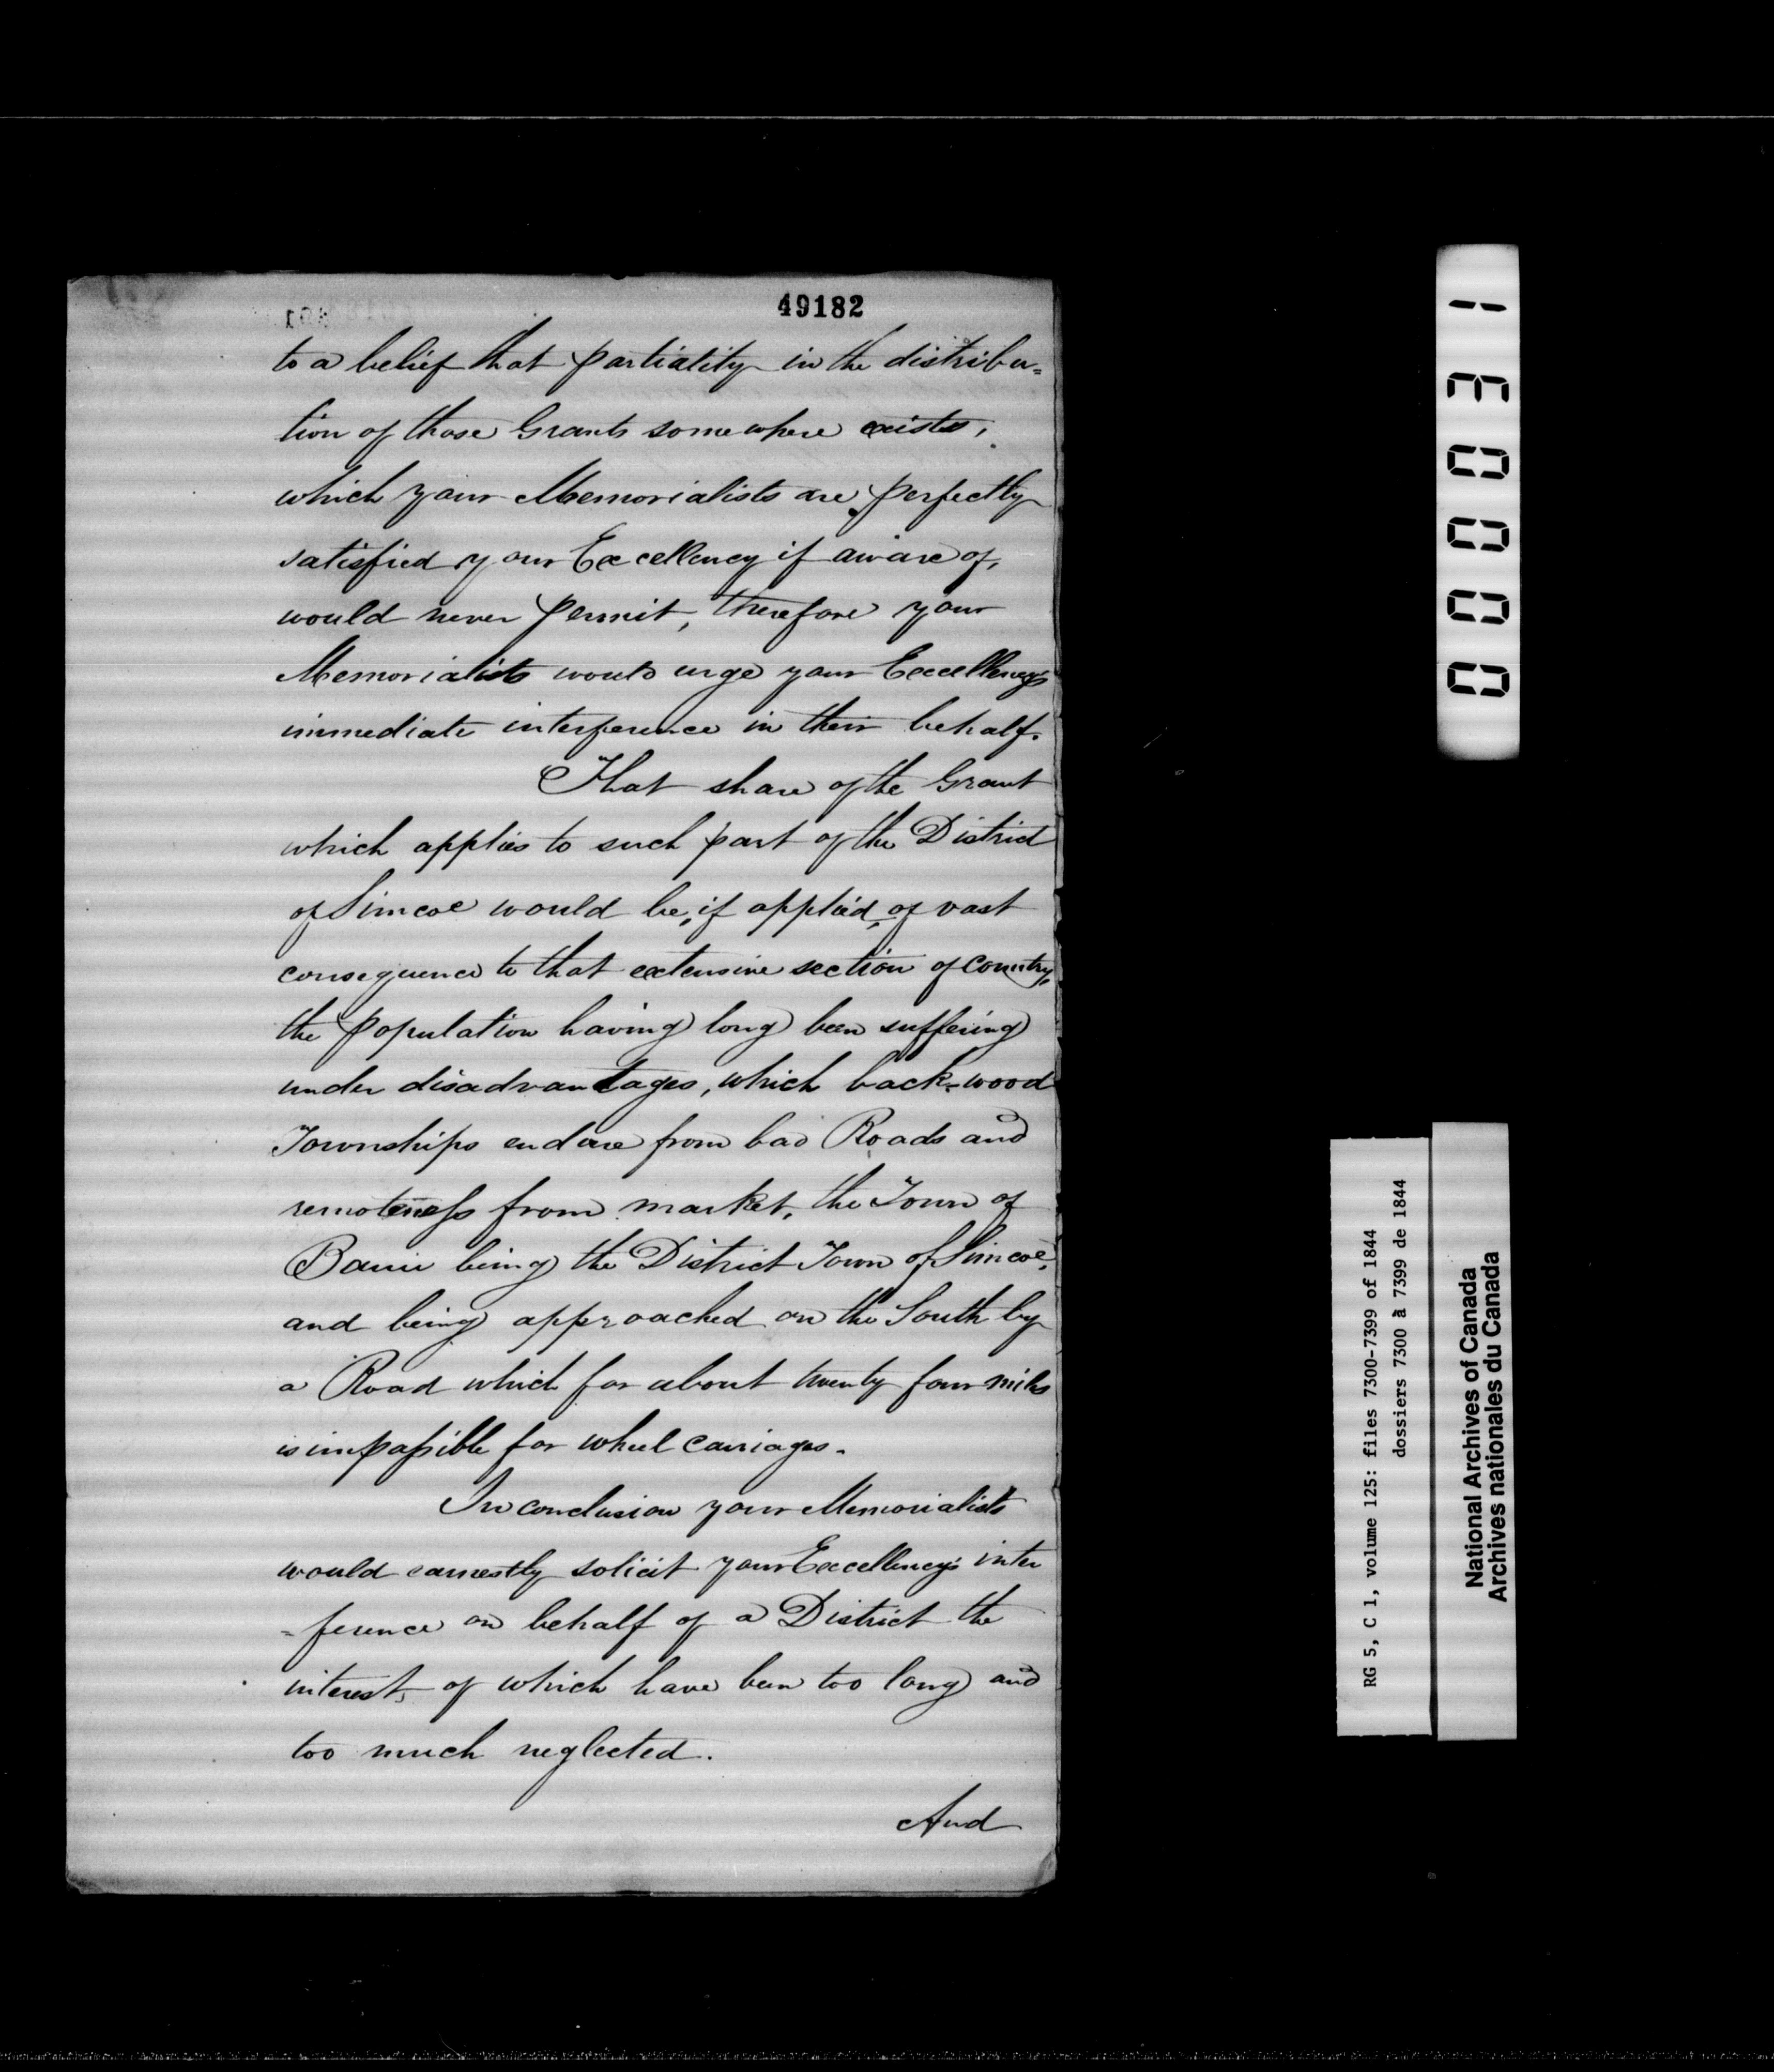 49182
to a belief that partiality in the distribu=
tion of those Grants somewhere exists,
which your Memorialists are perfectly
satisfied your Excellency if aware of,
would never permit, therefore your
Memorialists would urge your Excellency's
immediate interference in their behalf.
That share of the Grant
which applies to such part of the District
of Simcoe would be, if applied, of vast
consequence to that extensive section of country,
the Population having long been suffering
under disadvantages, which back-wood
Townships endure from bad Roads and
remoteness from market, the Town of
Barrie being the District Town of Simcoe,
and being approached on the South by
a Road which for about twenty four miles
is impassible for wheel carriages.
In conclusion your Memorialists
would earnestly solicit your Excellency's inter
=ference on behalf of a District the
interests of which have been too long and
too much neglected.
And
000031
RG 5, C 1, volume 125: files 7300-7399 of 1844
dossiers 7300 à 7399 de 1844
National Archives of Canada
Archives nationales du Canada